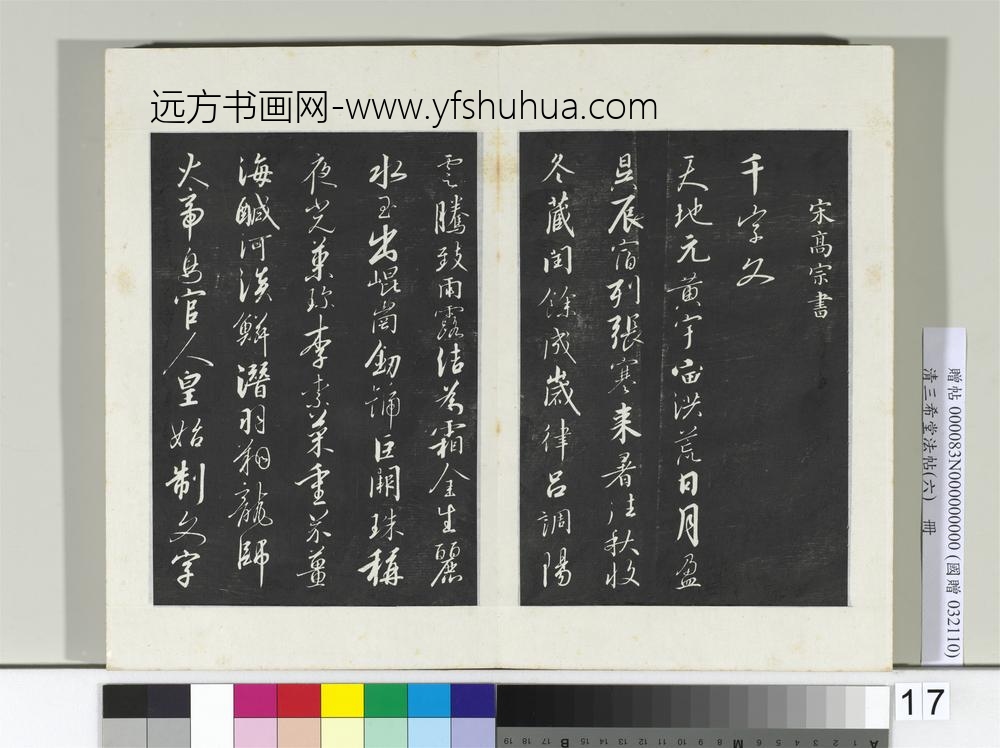 远方书画网-www.yfshuhua.com
宋高宗書
千字文
天地元黄宇宙洪荒日月盈
昃辰宿列張寒来暑往秋收
冬藏閏餘成歲律呂調陽
雲騰致雨露結為霜金生麗
水玉出崐崗劒號巨闕珠稱
夜光菓珍李柰菜重芥薑
海鹹河淡鱗潛羽翔龍師
火帝鳥官人皇始制文字
贈帖 000083N000000000 (國贈 032110)
清三希堂法帖(六) 冊
17
A 1 2 3 4 5 6 M 8 9 10 11 12 13 14 15 B 17 18 19